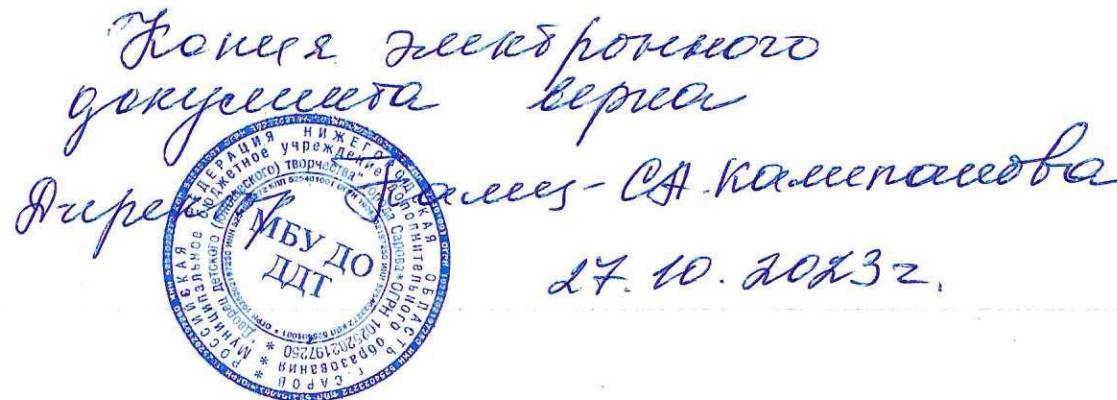 Копия электронного
документа верна
Директор Камп- С.А. Кампанова
27.10.2023 г.
РОССИЙСКАЯ ФЕДЕРАЦИЯ НИЖЕГОРОДСКАЯ ОБЛАСТЬ Г. САРОВ *
* Муниципальное бюджетное учреждение дополнительного образования
"Дворец детского (юношеского) творчества" города Сарова * ОГРН 1025202197250 *
МБУ ДО
ДДТ